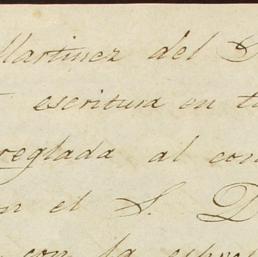 Martinez del
escritura en
reglada al con
n el S. D
con la espre